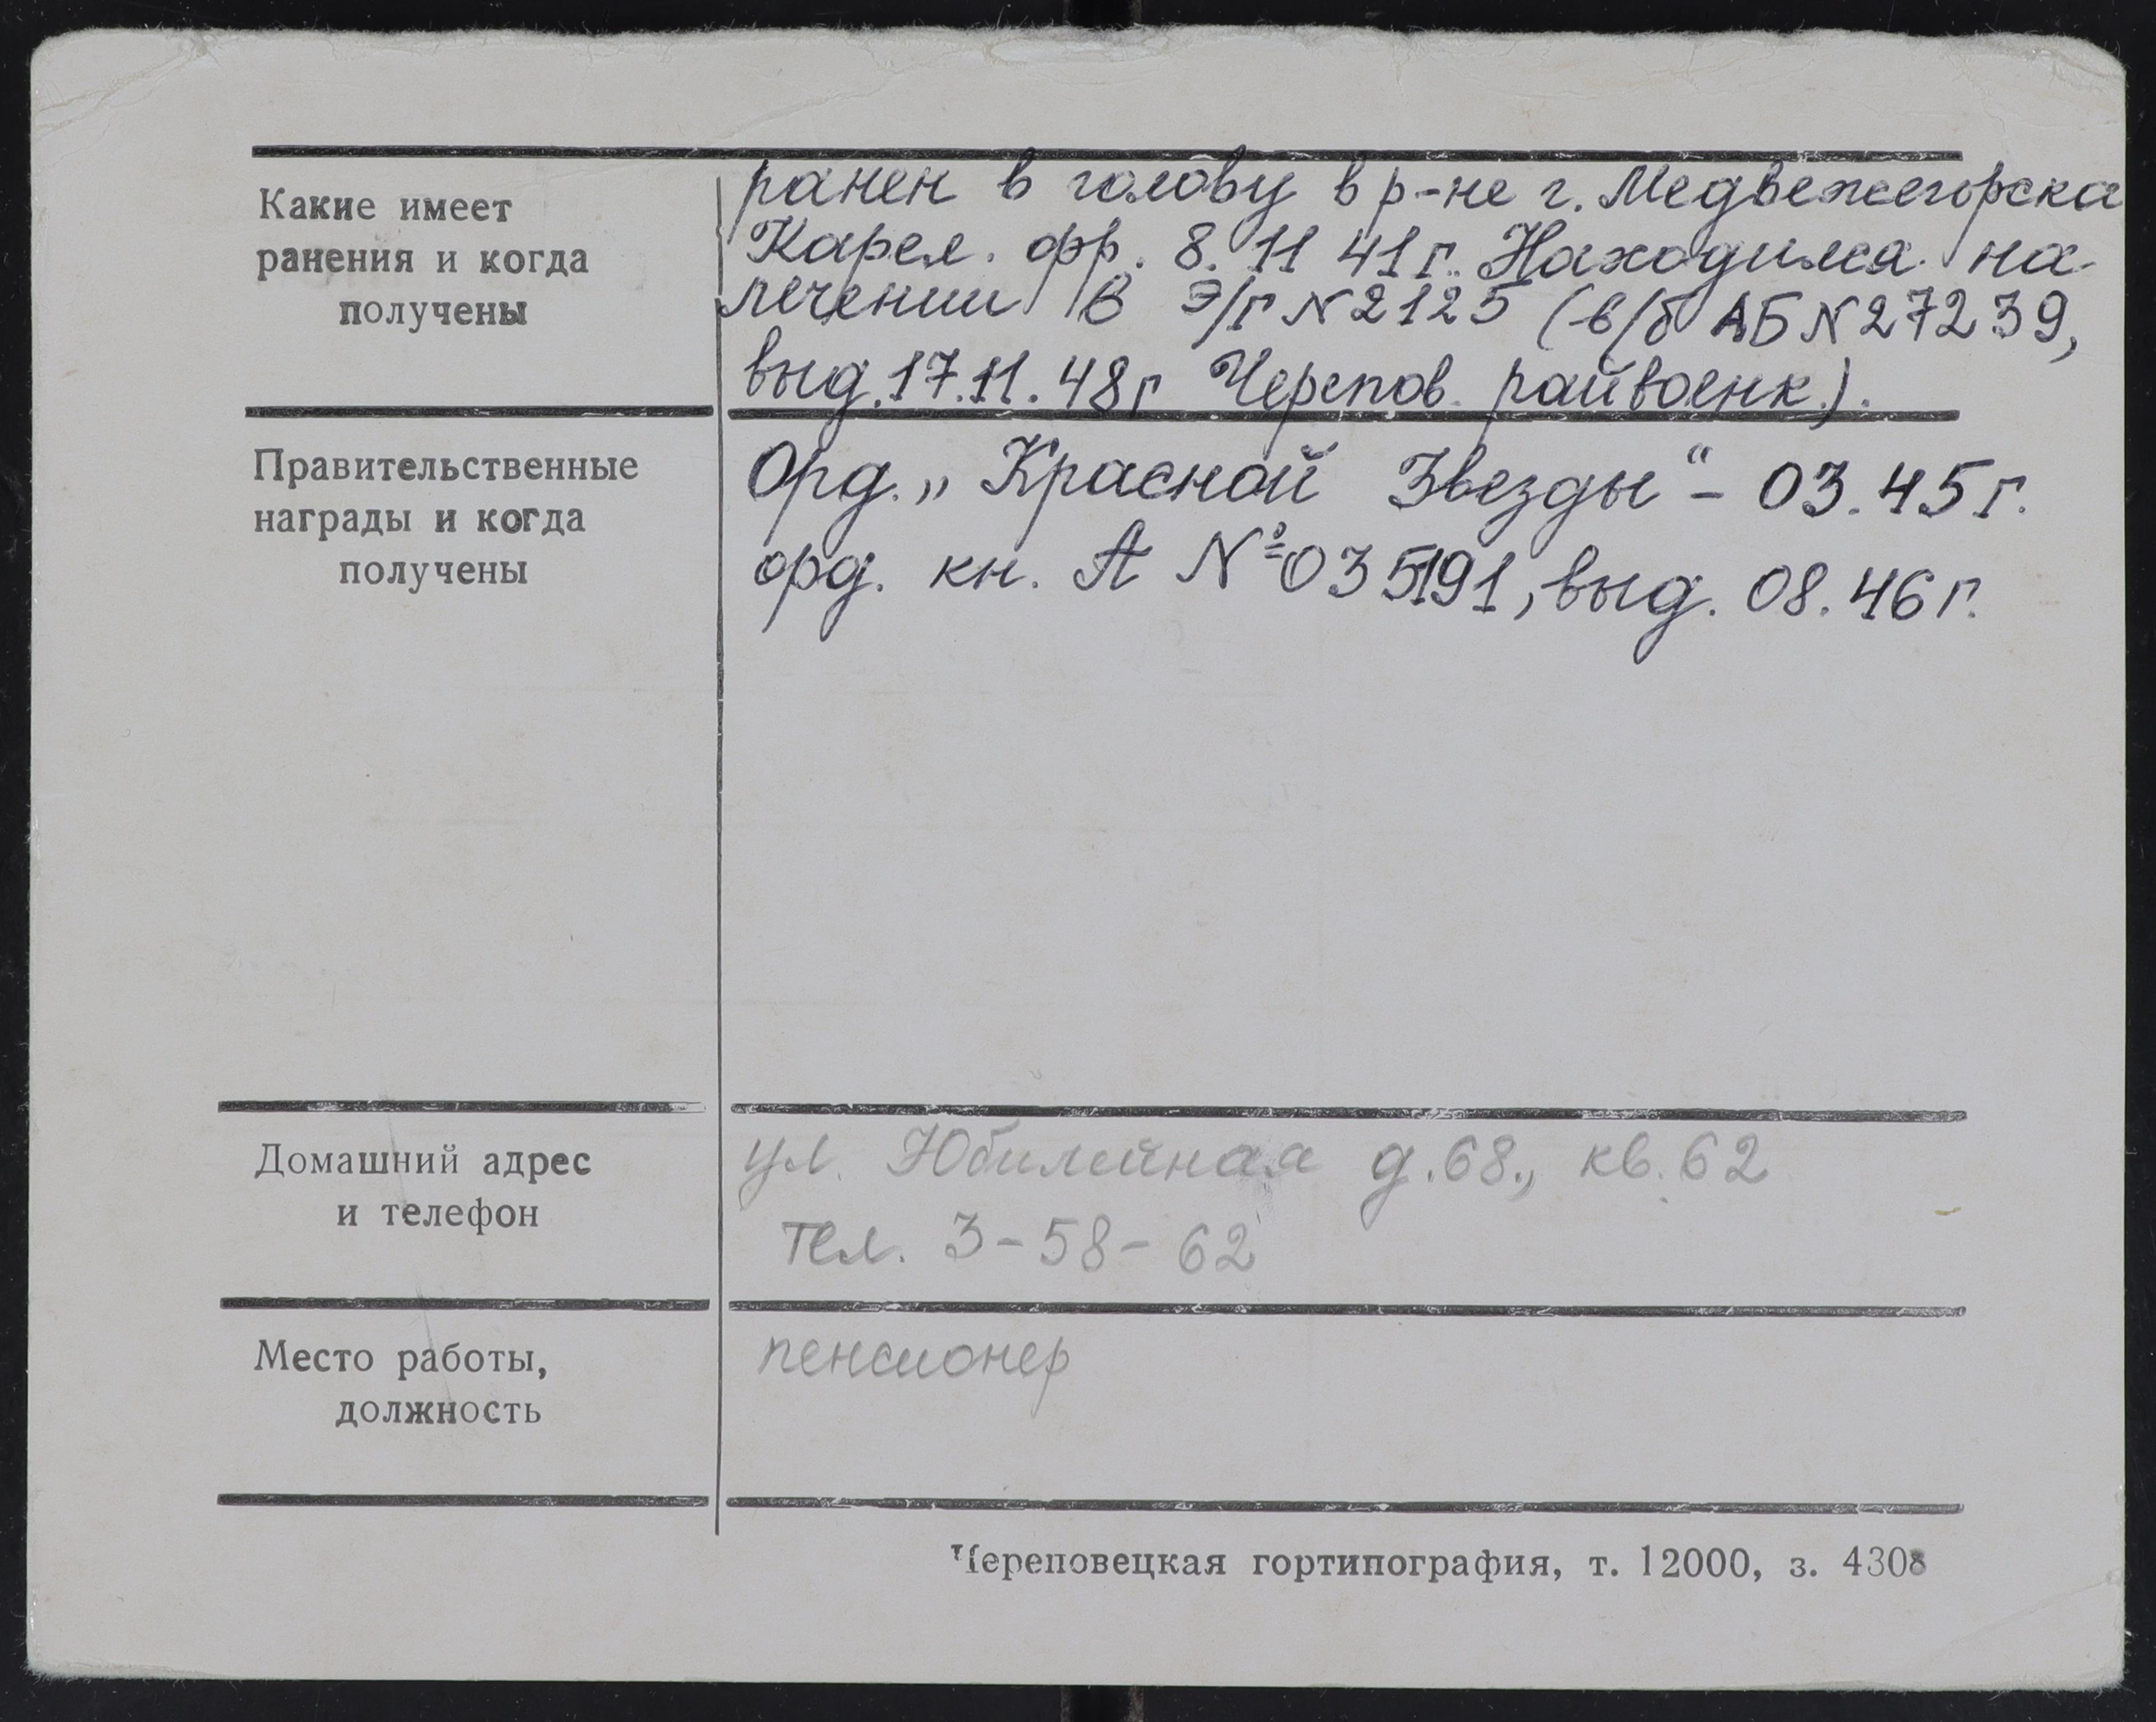 Какие имеет
ранения и когда
получены
ранен в голову в р-не г. Медвежегорска
Карел. фр. 8. 11 41 г. Находился на
лечении в Э/Г N 2125 (в/б АБ N 27239,
выд. 17.11.48 г Черепов. райвоенк.).
Правительственные
награды и когда
получены
Орд. „Красной Звезды“ – 03.45 г.
орд. кн. А № 035191, выд. 08.46 г.
Домашний адрес
и телефон
ул. Юбилейная д.68., кв.62
тел. 3-58-62
Место работы,
должность
пенсионер
Череповецкая гортипография, т. 12000, з. 4308